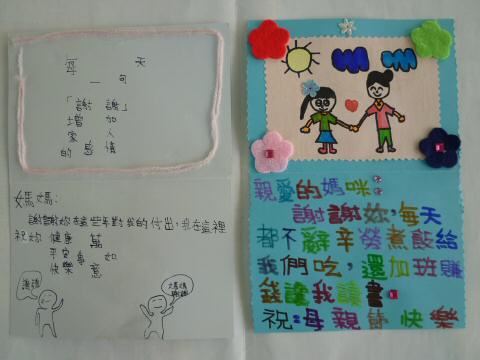 每天
一句
「謝謝」
增加
家人
的感情
媽媽:
謝謝妳這些年對我的付出,我在這裡
祝妳 健康 萬
平安 事 如
快樂 意
謝謝
媽媽
謝謝
親愛的媽咪:
謝謝妳,每天
都不辭辛勞煮飯給
我們吃,還加班賺
錢讓我讀書。
祝:母親節 快樂